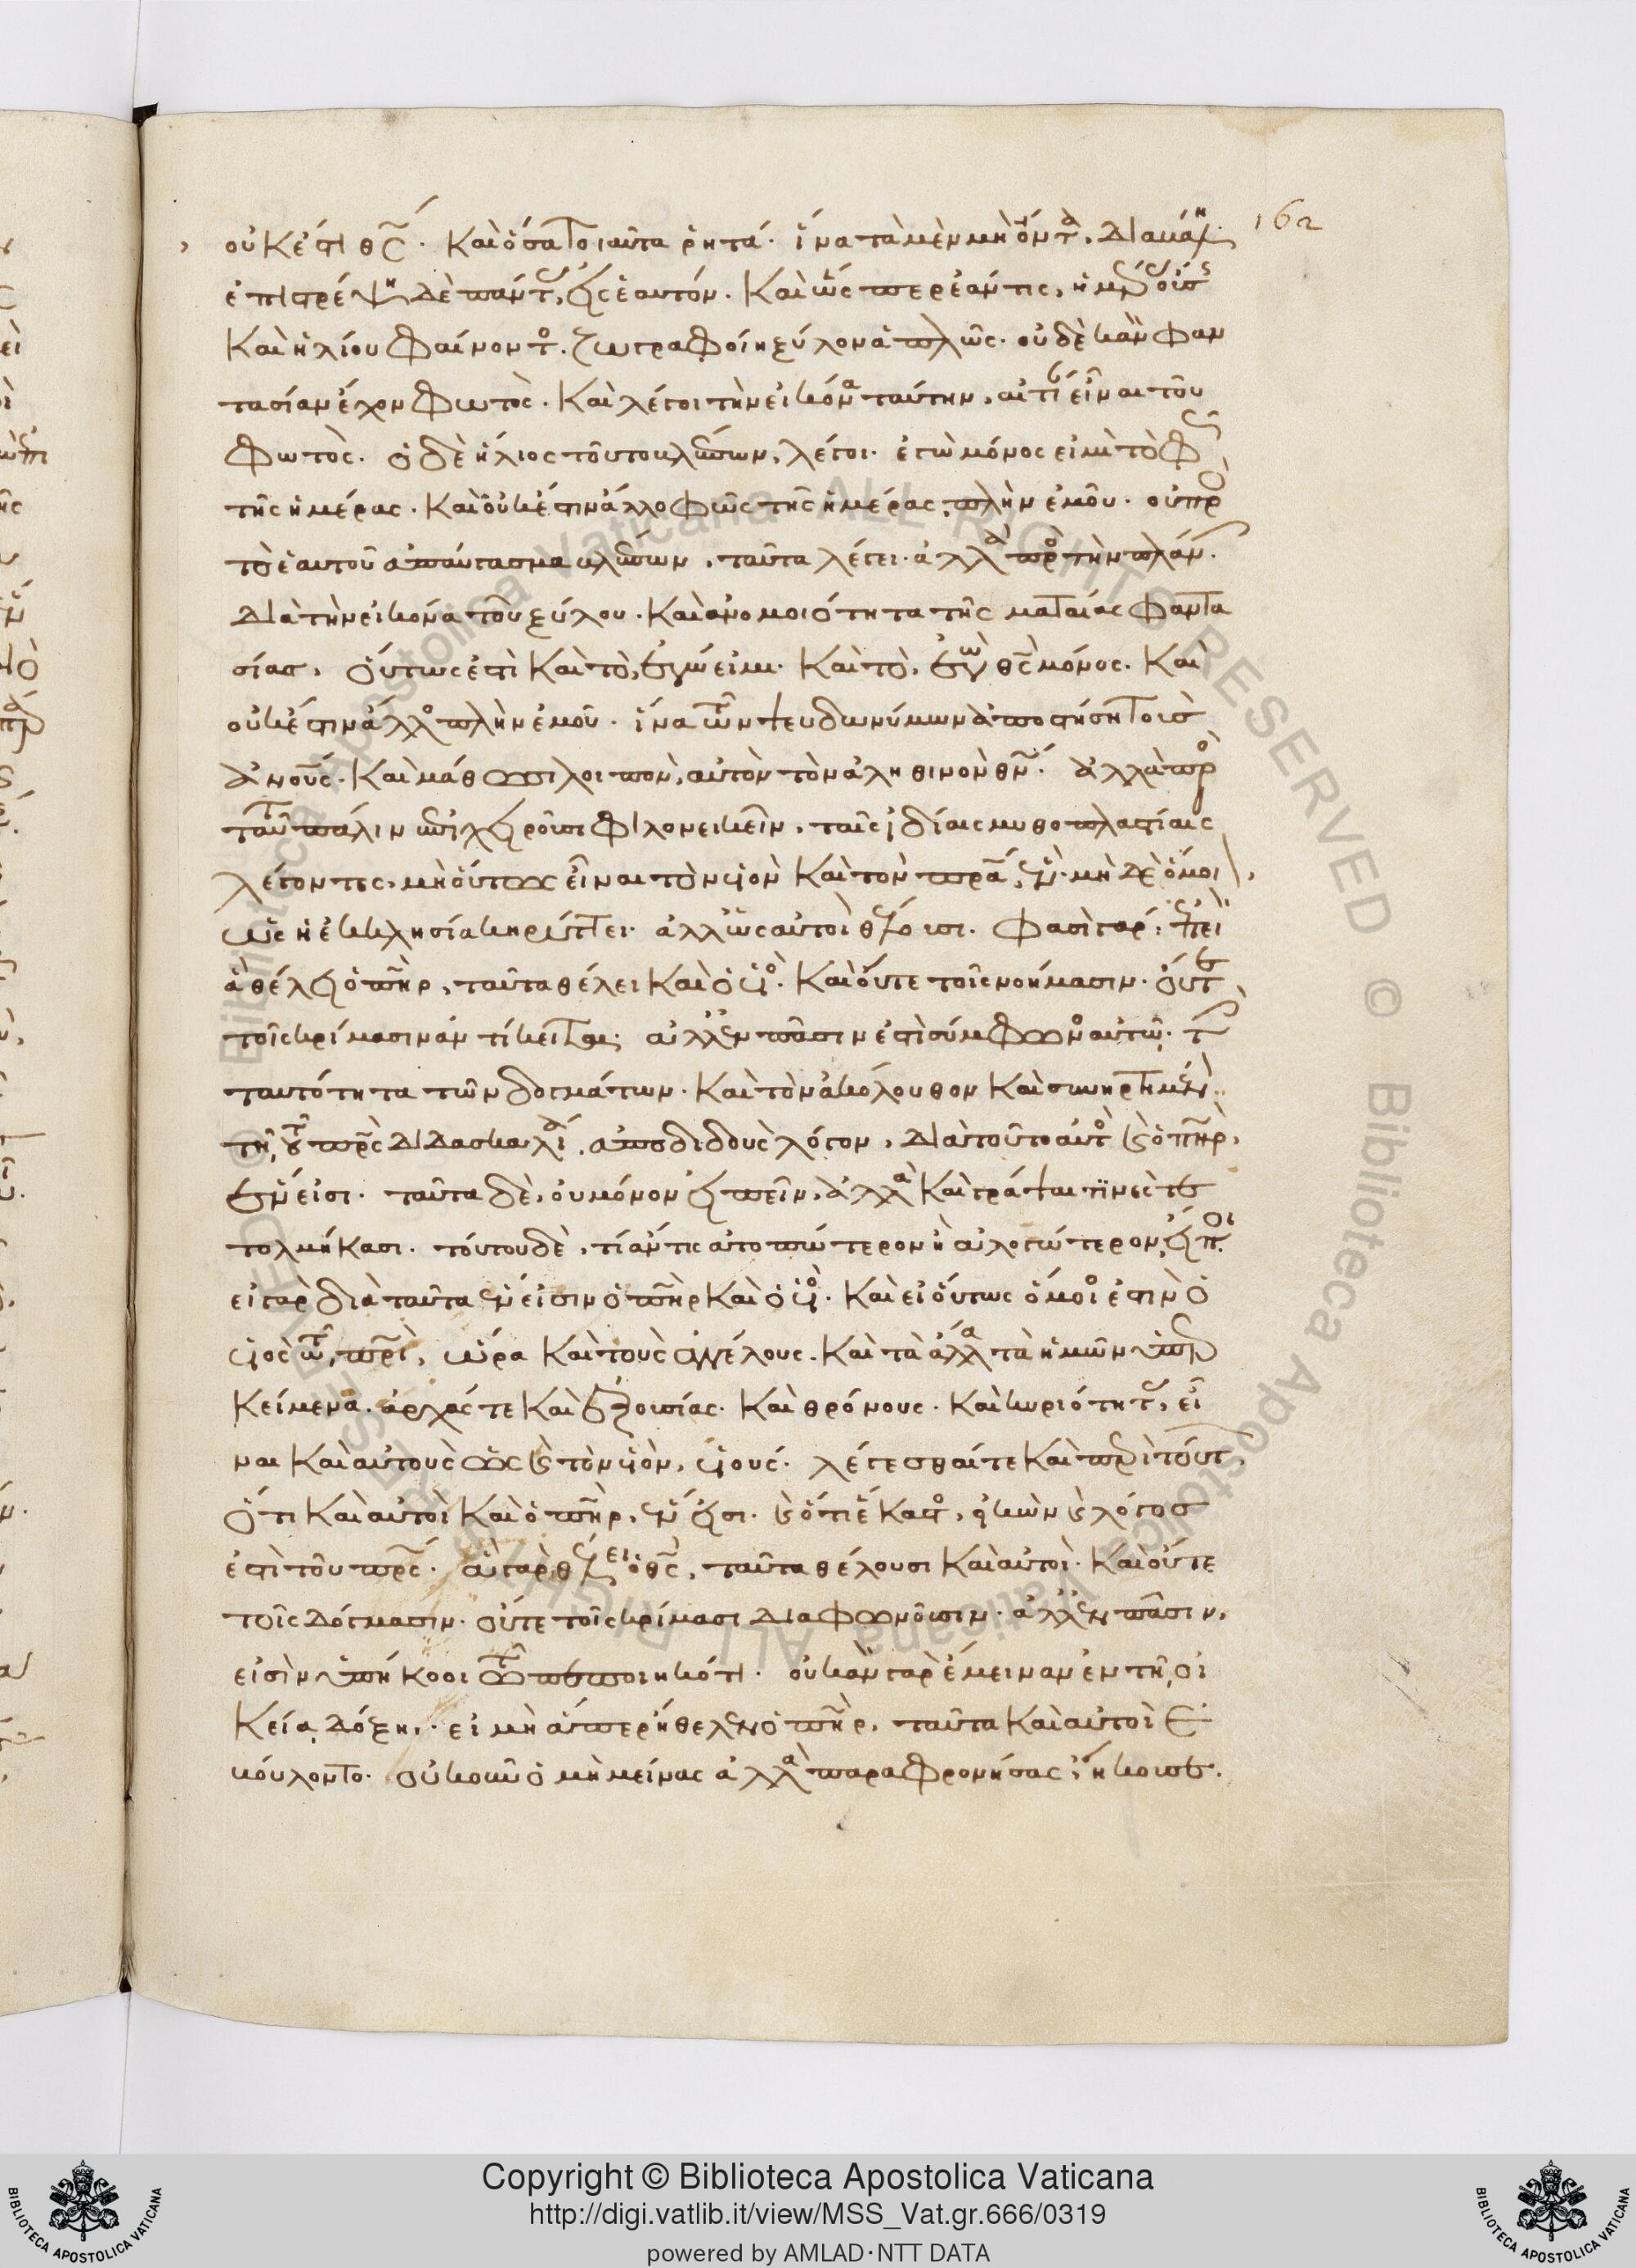 162
οὐκ ἔστι θς. καὶ ὅσα τοιαῦτα ῥητά. ἵνα τὰ μὲν μὴ ὄντα, διαβάλῃ
ἐπιστρέψῃ δὲ πάντας εἰς ἑαυτόν. καὶ ὥσπερ ἐάν τις, ἡμέρας οὔσης
καὶ ἡλίου φαίνοντος. ζωγραφοίη ξύλον ἁπλῶς. οὐδὲ κἂν φαν
τασίαν ἔχον φωτός. καὶ λέγοι τὴν εἰκόνα ταύτην, αἰτίαν εἶναι τοῦ
φωτός. ὁ δὲ ἥλιος τοῦτο βλέπων, λέγοι. ἐγὼ μόνος εἰμὶ τὸ φῶς
τῆς ἡμέρας. καὶ οὐκ ἔστιν ἄλλο φῶς τῆς ἡμέρας πλὴν ἐμοῦ. οὐ πρὸς
τὸ ἑαυτοῦ ἀπαύγασμα βλέπων, ταῦτα λέγει. ἀλλὰ πρὸς τὴν πλάνην
διὰ τὴν εἰκόνα τοῦ ξύλου. καὶ ἀνομοιότητα τῆς ματαίας φαντα
σίας, οὕτως ἐστὶ καὶ τὸ, ἐγώ εἰμι. καὶ τὸ, ἐγὼ θς μόνος. καὶ
οὐκ ἔστιν ἄλλος πλὴν ἐμοῦ. ἵνα τῶν ψευδωνύμων ἀποστήσῃ τοὺς
ἀνους. καὶ μάθωσι λοιπὸν, αὐτὸν τὸν ἀληθινὸν θν. ἀλλὰ πρὸς
ταῦτα πάλιν ἐπιχειροῦσι φιλονεικεῖν, ταῖς ἰδίαις μυθοπλαστίαις
λέγοντες, μὴ οὕτως εἶναι τὸν υἱὸν καὶ τὸν πρα, ἕν. μὴ δὲ ὅμοι
ὡς ἡ ἐκκλησία κηρύττει. ἀλλ' ὡς αὐτοὶ θέλουσι. φασὶ γάρ. ἐπεὶ
ἃ θέλει ὁ πηρ, ταῦτα θέλει καὶ ὁ υἱός. καὶ οὔτε τοῖς νοήμασιν. οὔτε
τοῖς κρίμασιν ἀντίκειται. ἀλλ' ἐν πᾶσιν ἐστὶ σύμφωνος αὐτῷ. τὴν
ταυτότητα τῶν δογμάτων. καὶ τὸν ἀκόλουθον καὶ συνηρτημένον
τῇ τοῦ πρς διδασκαλίᾳ, ἀποδιδοὺς λόγον, διὰ τοῦτο αὐτὸς καὶ ὁ πηρ,
ἕν εἰσι. ταῦτα δὲ, οὐ μόνον εἰπεῖν, ἀλλὰ καὶ γράψαι τινὲς
τολμήκασι. τούτου δὲ, τί ἄν τις ἀτοπώτερον ἢ ἀλογώτερον εἴποι
εἰ γὰρ διὰ ταῦτα ἕν εἰσιν ὁ πηρ καὶ ὁ υἱός. καὶ εἰ οὕτως ὅμοιός ἐστιν ὁ
υἱὸς τῷ πρι, ὥρα καὶ τοὺς ἀγγέλους. καὶ τὰ ἄλλα τὰ ἡμῶν ὑπερ
κείμενα. ἀρχάς τε καὶ ἐξουσίας. καὶ θρόνους. καὶ κυριότητας, εἶ
ναι καὶ αὐτοὺς ὡς καὶ τὸν υἱὸν, υἱούς. λέγεσθαί τε καὶ περὶ τούτων,
ὅτι καὶ αὐτοὶ καὶ ὁ πηρ, ἕν εἰσι. καὶ ὅτι ἕκαστος, εἰκὼν καὶ λόγος
ἐστὶ τοῦ πρς. ἃ γὰρ θέλει ὁ θς, ταῦτα θέλουσι καὶ αὐτοί. καὶ οὔτε
τοῖς δόγμασιν. οὔτε τοῖς κρίμασι διαφωνοῦσιν. ἀλλ' ἐν πᾶσιν,
εἰσὶν ὑπήκοοι τῷ πεποιηκότι. οὐκ ἂν γὰρ ἔμειναν ἐν τῇ οἰ
κείᾳ δόξῃ, εἰ μὴ ἅπερ ἤθελεν ὁ πηρ, ταῦτα καὶ αὐτοὶ ἐ
βούλοντο. οὐκοῦν ὁ μὴ μείνας ἀλλὰ παραφρονήσας, ἤκουσε.
Copyright © Biblioteca Apostolica Vaticana
http://digi.vatlib.it/view/MSS_Vat.gr.666/0319
powered by AMLAD·NTT DATA